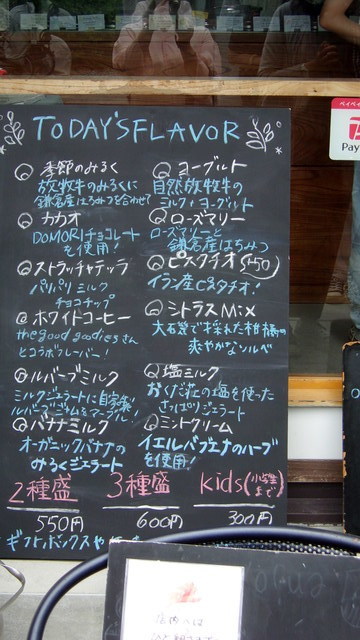 TODAY'S FLAVOR
季節のみるく
放牧牛のみるくに
鎌倉産はちみつを合わせて
カカオ
DOMORIチョコレート
を使用!
ストラッチャテッラ
パリパリミルク
チョコチップ
ホワイトコーヒー
the good goodiesさん
とコラボフレーバー!
ルバーブミルク
ミルクジェラートに自家製
ルバーブジャムをマーブル
バナナミルク
オーガニックバナナの
みるくジェラート
ヨーグルト
自然放牧牛の
ミルク・ヨーグルト
ローズマリー
ローズマリーと
鎌倉産はちみつ
ピスタチオ +50
イラン産ピスタチオ!
シトラスMix
大石農で採れた柑橘の
爽やかなソルベ
塩ミルク
おくだ荘の塩を使った
さっぱりジェラート
ミントクリーム
イエルバブエナのハーブ
を使用!
2種盛
550円
3種盛
600円
kids(小学生まで)
300円
ギフトボックスや
ペイペイ
Pay
店内へは